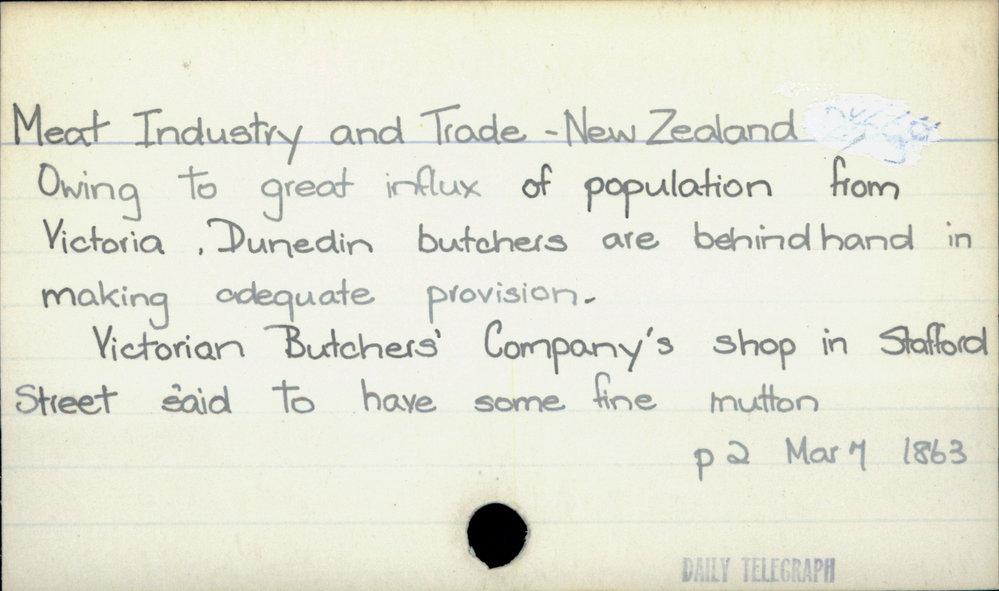 Meat Industry and Trade - New Zealand
Owing to great influx of population from
Victoria , Dunedin butchers are behindhand in
making adequate provision.
Victorian Butchers' Company's shop in Stafford
Street said to have some fine mutton
p 2 Mar 7 1863
DAILY TELEGRAPH